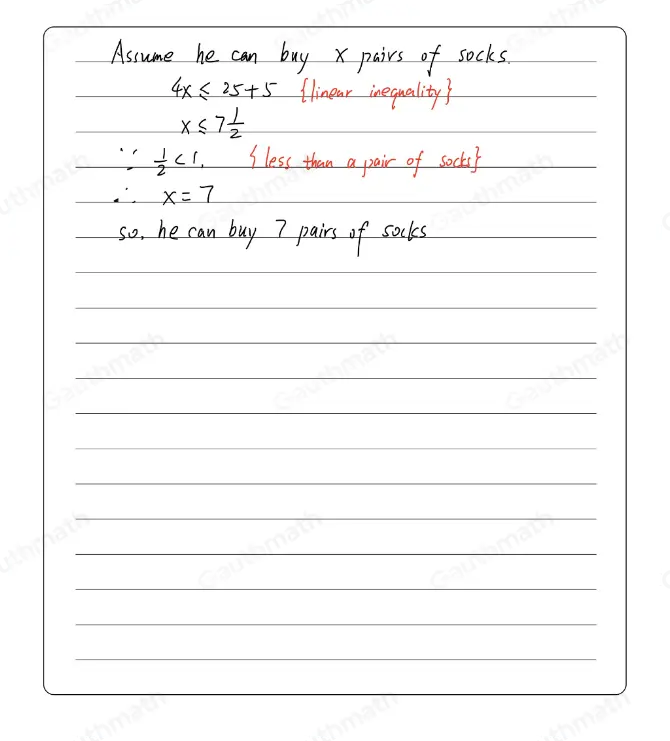 Assume he can buy x pairs of socks.
4x ≤ 25+5 {linear inequality}
x ≤ 7 1/2
∵ 1/2 < 1. {less than a pair of socks}
∴ x = 7
so. he can buy 7 pairs of socks
Gauthmath